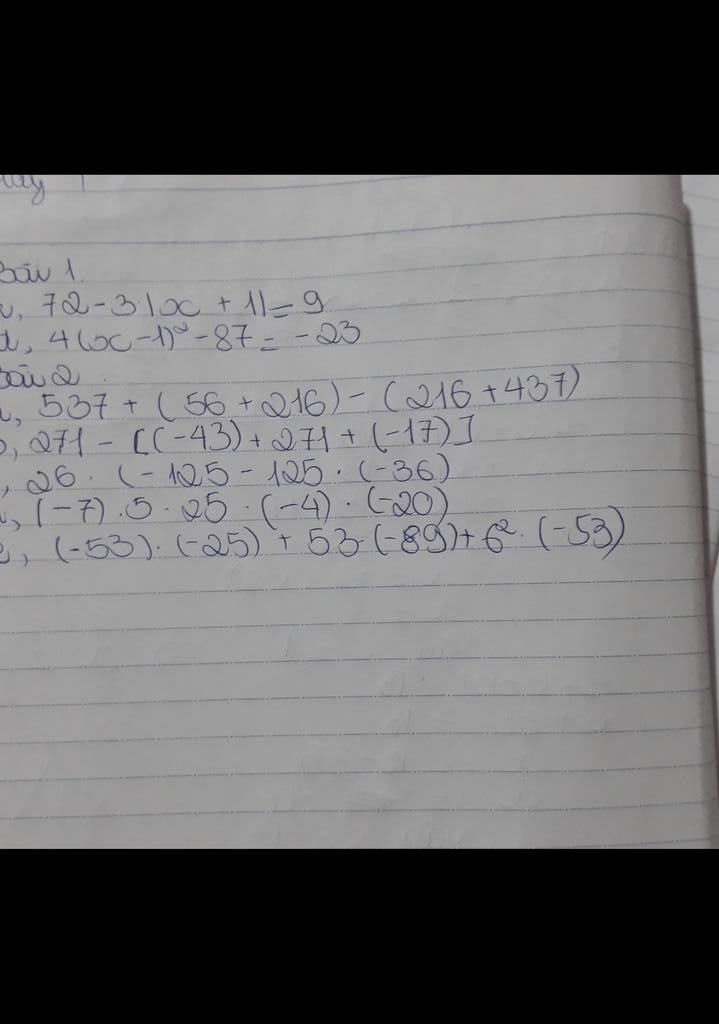 Bài 1
, 72 - 3|x + 1| = 9
d, 4(x - 1)² - 87 = -23
Bài 2
, 537 + (56 + 216) - (216 + 437)
, 271 - [(-43) + 271 + (-17)]
, 26 . (-125 - 125 . (-36)
, (-7) . 5 . 25 . (-4) . (-20)
e, (-53) . (-25) + 53 . (-89) + 6² . (-53)